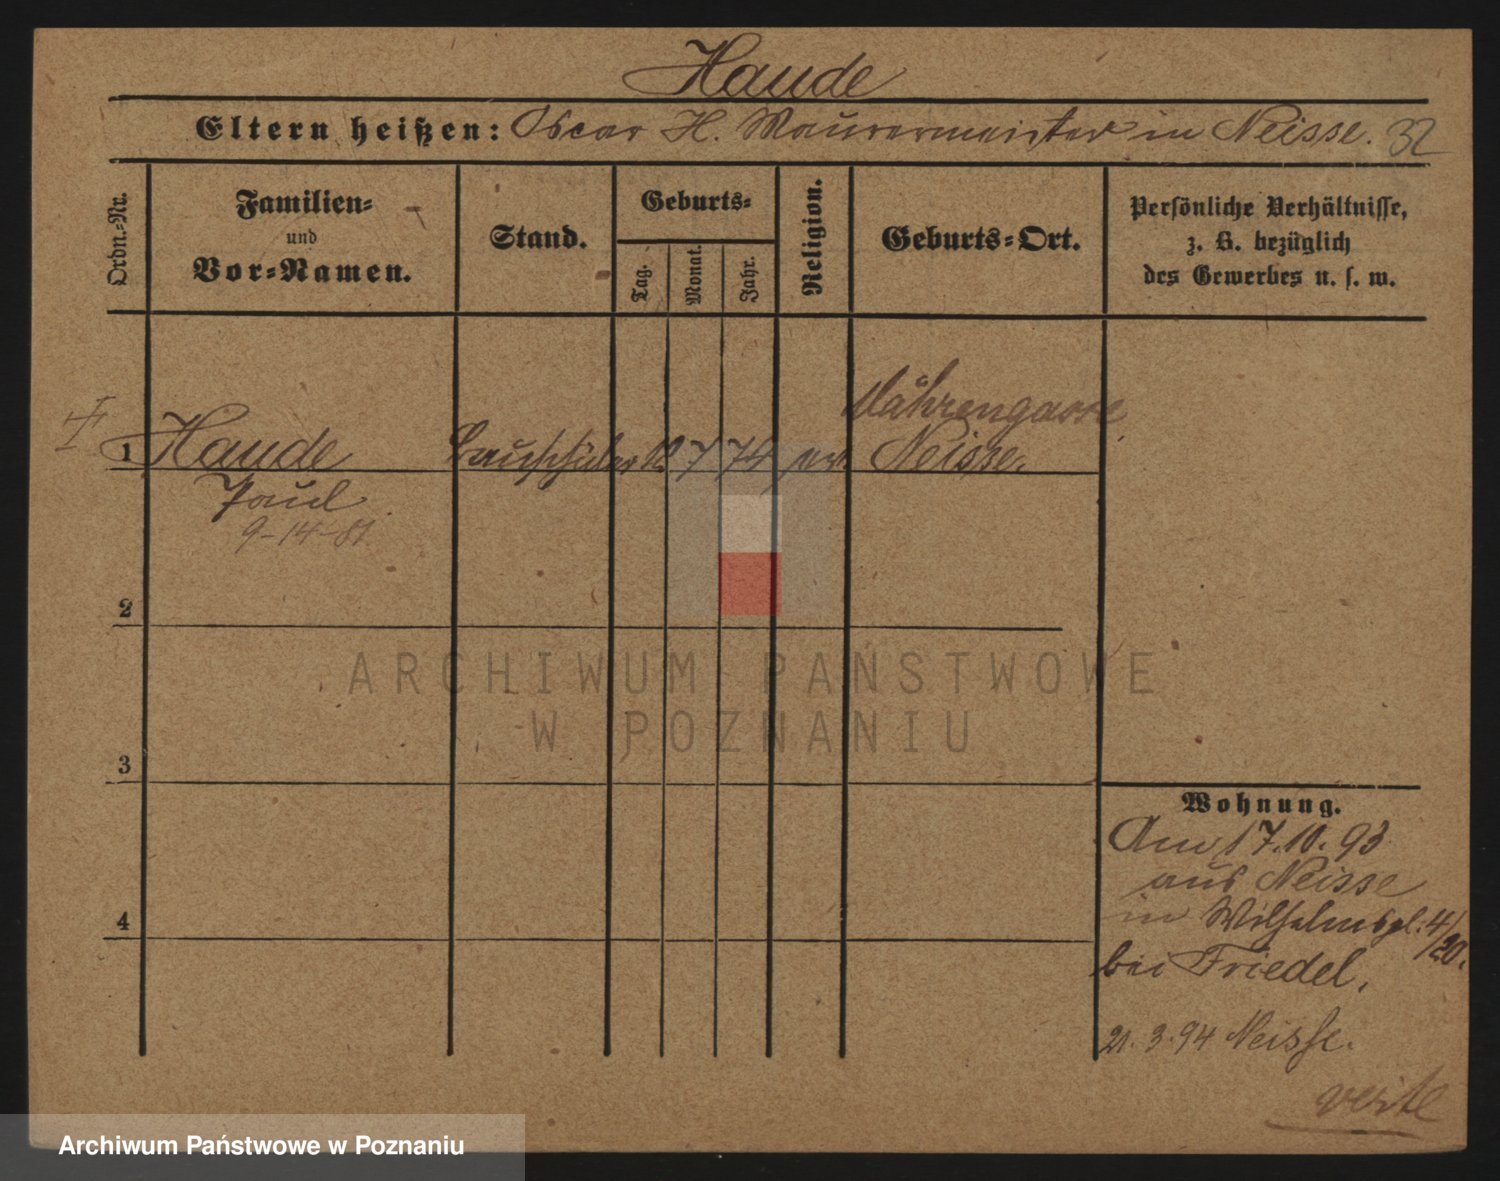 Haude
Eltern heißen: Oscar H. Maurermeister in Neisse. 32
Ordn.-Nr.
Familien-
und
Vor-Namen.
Stand.
Geburts-
Tag.
Monat.
Jahr.
Religion.
Geburts-Ort.
Persönliche Verhältnisse,
z. B. bezüglich
des Gewerbes u. s. w.
Mährengasse
1 Haude Bauschüler 7 74 Neisse.
Paul
9-14-81
2
3
4
Wohnung.
17.10.93
aus Neisse
in Wilhelmspl. 4/20.
bei Friedel.
21.3.94 Neisse.
ARCHIWUM PAŃSTWOWE
W POZNANIU
Archiwum Państwowe w Poznaniu